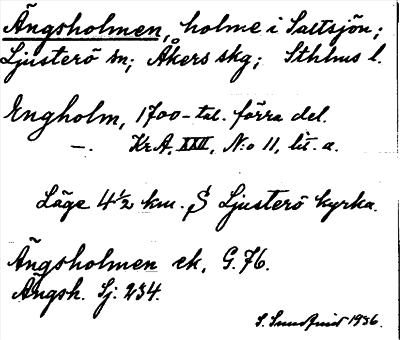 Ängsholmen, holme i Saltsjön;
Ljusterö sn; Åkers skg; Sthlms l.
Engholm, 1700-tal. förra del.
—. KrA, XXII, N:o 11, lit. a.
Läge 4½ km. S Ljusterö kyrka.
Ängsholmen ek, G. 76.
Ängsh. Sj: 234.
S. 1936.